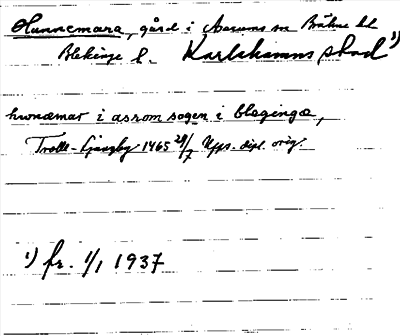 Hunnemara, gård i Asarums sn Bräkne hd
Blekinge l. Karlshamns stad 1)
hwnæmar i asrom sogen i blæginge,
Trolle-Ljungby 1465 28/7 Upps. dipl. orig.
1) fr. 1/1 1937